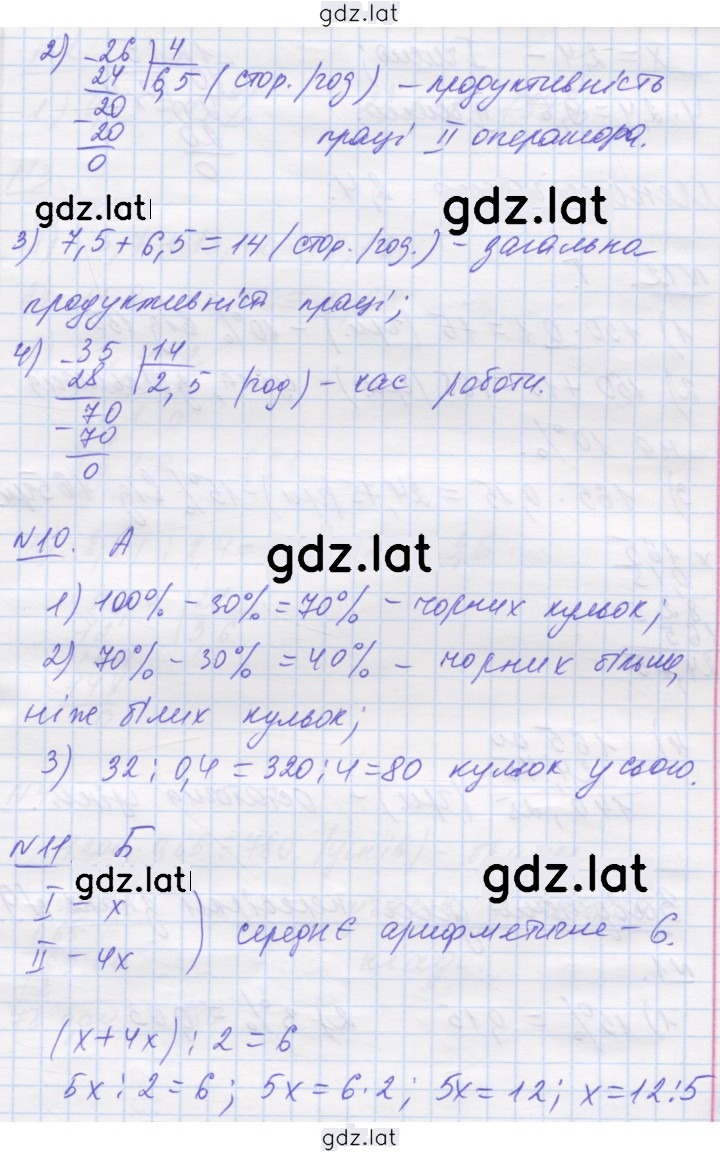 gdz.lat
2) 26 | 4
24 6,5 (стор./год) – продуктивність
20
20 праці II оператора.
0
gdz.lat gdz.lat
3) 7,5 + 6,5 = 14 (стор./год.) – загальна
продуктивність праці;
4) 35 | 14
28 2,5 (год) – час роботи.
70
70
0
№10. А
gdz.lat
1) 100% – 30% = 70% – чорних кульок;
2) 70% – 30% = 40% – чорних більше,
ніж білих кульок;
3) 32 : 0,4 = 320 : 4 = 80 кульок усього.
№11 Б
gdz.lat gdz.lat
I – x
II – 4x ) середнє арифметичне – 6.
(x + 4x) : 2 = 6
5x : 2 = 6; 5x = 6·2; 5x = 12; x = 12:5
gdz.lat